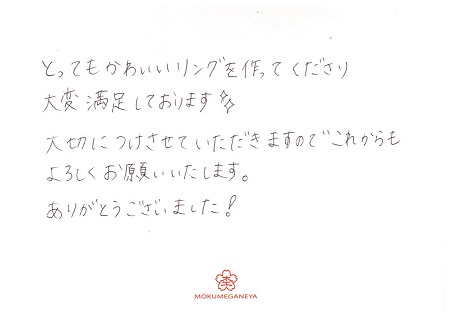 とってもかわいいリングを作ってくださり
大変満足しております✨
大切につけさせていただきますのでこれからも
よろしくお願いいたします。
ありがとうございました!
MOKUMEGANEYA